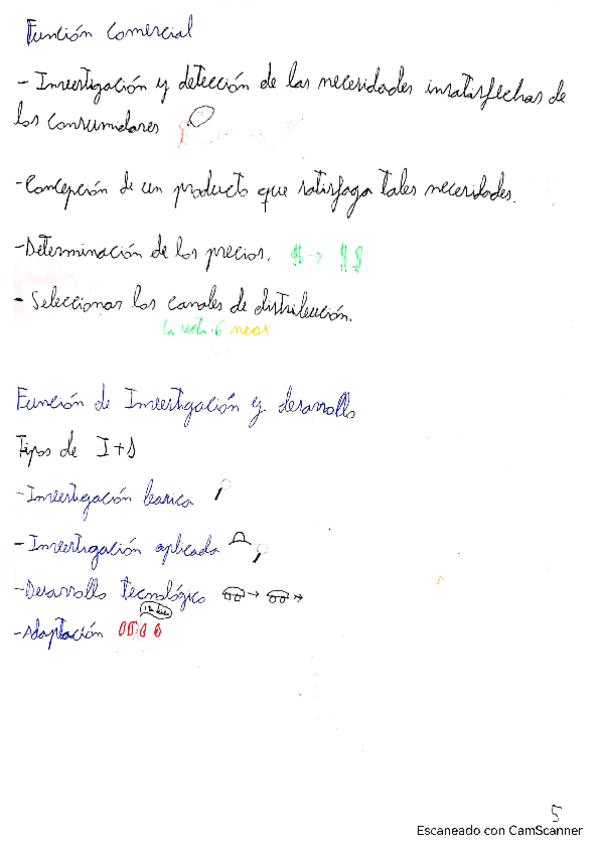 Función Comercial
- Investigación y detección de las necesidades insatisfechas de
los consumidores
- Concepción de un producto que satisfaga tales necesidades.
- Determinación de los precios. $ → $ $
- Seleccionar los canales de distribución.
Función de Investigación y desarrollo
Tipos de I+D
- Investigación basica
- Investigación aplicada
- Desarrollo tecnológico
- Adaptación
5
Escaneado con CamScanner